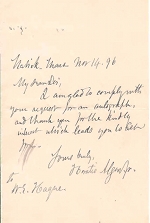 Natick Mass Nov 14. 96
My dear Sir,
I am glad to comply with
your request for an autograph,
and thank you for the kindly
interest which leads you to
Yours truly,
Horatio Alger Jr.
to
W. E. Hague.